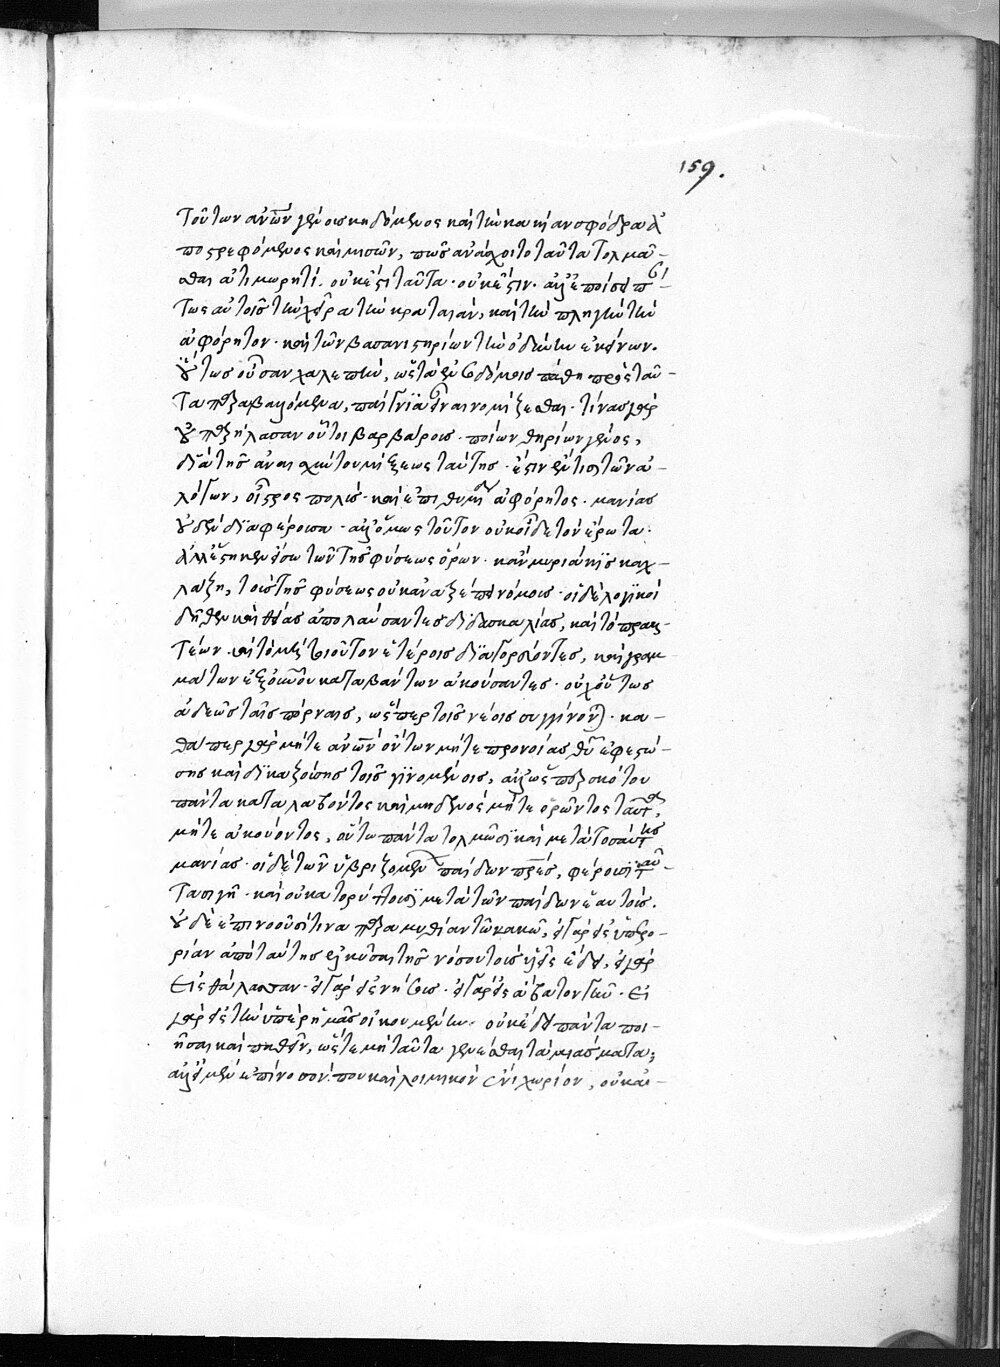 159.
τούτων ἀνῶν γένους κηδόμενος καὶ τὴν κακίαν σφόδρα ἀ
ποστρεφόμενος καὶ μισῶν, πῶς ἀνάσχοιτο ταῦτα τολμᾶ-
σθαι ἀτιμωρητί. οὐκ ἔστι ταῦτα· οὐκ ἔστιν· ἀλλ' ἐποίσει π
τως αὐτοῖς τὴν χεῖρα τὴν κραταιάν, καὶ τὴν πληγὴν τὴν
ἀφόρητον· καὶ τῶν βασανιστηρίων τὴν ὀδύνην ἐκείνων.
οὕτως οὖσαν χαλεπὴν, ὥστε τὰ ἐν Σοδόμοις πάθη πρὸς ταῦ-
τα παραβαλλόμενα, παίγνια εἶναι νομίζεσθαι· τίνας γὰρ
οὐ παρήλασαν οὗτοι βαρβάρους· ποίων θηρίων γένος,
διὰ τῆς ἀναισχύντου μίξεως ταύτης· ἔστιν ἔν τισι τῶν ἀ-
λόγων, οἶστρος πολὺς· καὶ ἐπιθυμία ἀφόρητος· μανίας
οὐδὲν διαφέρουσα· ἀλλ' ὅμως τοῦτον οὐκ οἶδε τὸν ἔρωτα·
ἀλλ' ἕστηκεν εἴσω τῶν τῆς φύσεως ὅρων· κἂν μυριάκις καχ-
λάζη, τοὺς τῆς φύσεως οὐκ ἀνατρέπει νόμους· οἱ δὲ λογικοὶ
δῆθεν καὶ θείας ἀπολαύσαντες διδασκαλίας, καὶ τὸ πρακ-
τέων· καὶ τὸ μὴ τοιοῦτον ἑτέροις διαγορεύοντες, καὶ γραμ-
μάτων ἐξ οὐνοῦ καταβάντων ἀκούσαντες· οὐχ οὕτως
ἀδεῶς ταῖς πόρναις, ὥσπερ τοῖς νέοις συγγίνον)· κα-
θάπερ γὰρ μήτε ἀνῶν ὄντων μήτε προνοίας θῦ ἐφεστώ-
σης καὶ δικαζούσης τοῖς γινομένοις, ἀλλ' ὡς περ σκότου
πάντα καταλαβόντος καὶ μηδενὸς μήτε ὁρῶντος ταῦτα,
μήτε ἀκούοντος, οὕτω πάντα τολμῶσι καὶ μετὰ τοσαύτης
μανίας· οἱ δὲ τῶν ὑβριζομένων παίδων πρες, φέρουσι ταῦ-
τα σιγῆ· καὶ οὐ κατορύττουσι μετὰ τῶν παίδων ἑαυτούς.
οὐδὲ ἐπινοοῦσί τινα παραμυθίαν τῶν κακῶν, εἰ γὰρ εἰς ὑπερο-
ρίαν ἀπὸ ταύτης ἑλκῦσαι τῆς νόσου τοὺς υἱεῖς ἔδει, εἰ γὰρ
εἰς θάλασσαν· εἰ γὰρ εἰς νήσους· εἰ γὰρ εἰς ἄβατον γῆν· εἰ
γὰρ εἰς τὴν ὑπὲρ ἡμᾶς οἰκουμένην. οὐκ ἔδει πάντα ποι-
ῆσαι καὶ παθεῖν, ὥστε μὴ ταῦτα γενέσθαι τὰ μιάσματα;
ἀλλ' εἰ μὲν ἐπίνοσόν που καὶ λοιμικὸν ἦν χωρίον, οὐκ ἂν-